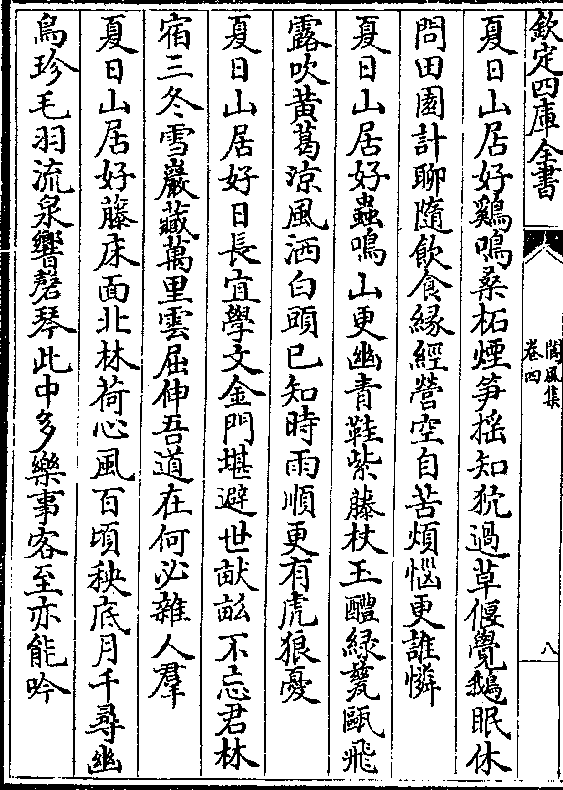 欽定四庫全書
閬風集
卷四
八
夏日山居好鷄鳴桑柘煙笋揺知犺過草偃覺鵝眠休
問田園計聊隨飲食緣經營空自苦煩惱更誰憐
夏日山居好蟲鳴山更幽青鞋紫藤杖玉醴綠甆甌飛
露吹黄葛凉風洒白頭已知時雨順更有虎狼憂
夏日山居好日長宜學文金門堪避世畎畝不忘君林
宿三冬雪巖藏萬里雲屈伸吾道在何必雜人羣
夏日山居好藤床面北林荷心風百頃秧底月千尋幽
鳥珍毛羽流泉響磬琴此中多樂事客至亦能吟